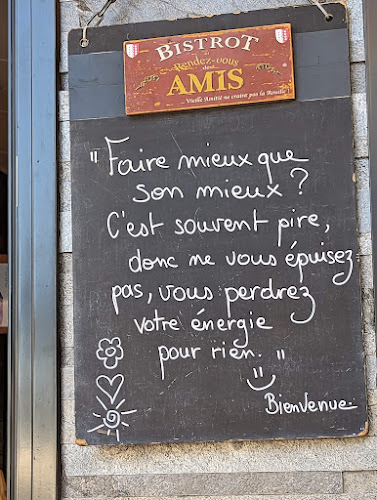 BISTROT
Rendez-vous
des
AMIS
...Vieille Amitié ne craint pas la Rouille
"Faire mieux que
son mieux ?
C'est souvent pire,
donc ne vous épuisez
pas, vous perdrez
votre énergie
pour rien."
Bienvenue